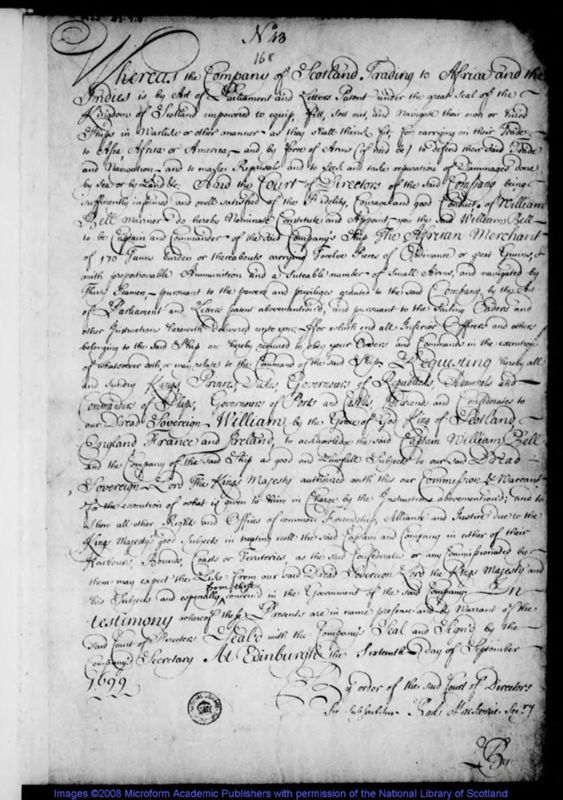 No 43
168
Whereas the Company of Scotland Trading to Africa and the
Indies is by Act of Parliament and Letters Patent under the great Seal of the
Kingdom of Scotland impowered to equip, fitt, sett out, and Navigate their own or hired
Ships in Warlike or other manner as they shall think fit, for carrying on their Trade
to Asia, Africa or America, and by force of Arms (if need be) to defend their said Trade
and Navigation and to make Reprisals and to seek and take reparation of Dammage done
by sea or by Land &c. And the Court of Directors of the said Company being
sufficiently informed and well satisfied of the Fidelity, Courage and good Conduct of William
Bell Mariner do hereby Nominate Constitute and Appoint you the said William Bell
to be Captain and Commander of the said Company's Ship The African Merchant
of 170 Tuns burden or thereabouts carrying Twelve Pieces of Ordnance or great Gunns,
with proportionable Ammunition and a suteable number of Small Arms, and navigated by
Thirty Seamen, pursuant to the powers and priviledges granted to the said Company, by the Act
of Parliament and Letters Patent abovementioned, and pursuant to the Sailing Orders and
other Instructions herewith delivered unto you, For which end all Inferior Officers and others
belonging to the said Ship are hereby required to obey your Orders and Commands in the execution
of whatsoever doth or may relate to the Command of the said Ship, Requesting hereby all
and sundry Kings Princes, Dukes, Governours of Republicks, Admirals and
Commanders of Ships, Governours of Ports and Castles, Friends and Confederates to
our Dread Sovereign William by the Grace of God King of Scotland
England France and Ireland, to acknowledge the said Captain William Bell
and the Company of the said Ship as good and Lawfull Subjects to our said Dread
Sovereign Lord The Kings Majesty authorized with this our Commission & Warrant
for the execution of what is given to him in Charge by the Instructions abovementioned; and to
show all other Rights and Offices of common Friendship, Alliance and Justice due to the
Kings Majesty's good Subjects in treating well the said Captain and Company in either of their
Harbours, Bounds, Coasts or Territories as the said Confederates or any Commissionated by
them may expect the Like from our said Dread Sovereign Lord the Kings Majesty and
his Subjects and especially from those concerned in the Government of the said Company In
testimony whereof these Presents are in name presence and by Warrant of the
said Court of Directors Seal'd with the Company's Seal and Sign'd by the
Company's Secretary At Edinburgh the Sixteenth day of September
1699
By order of the said Court of Directors
Sic Subscribitur Rod: Mackenzie Secry
By
Images ©2008 Microform Academic Publishers with permission of the National Library of Scotland